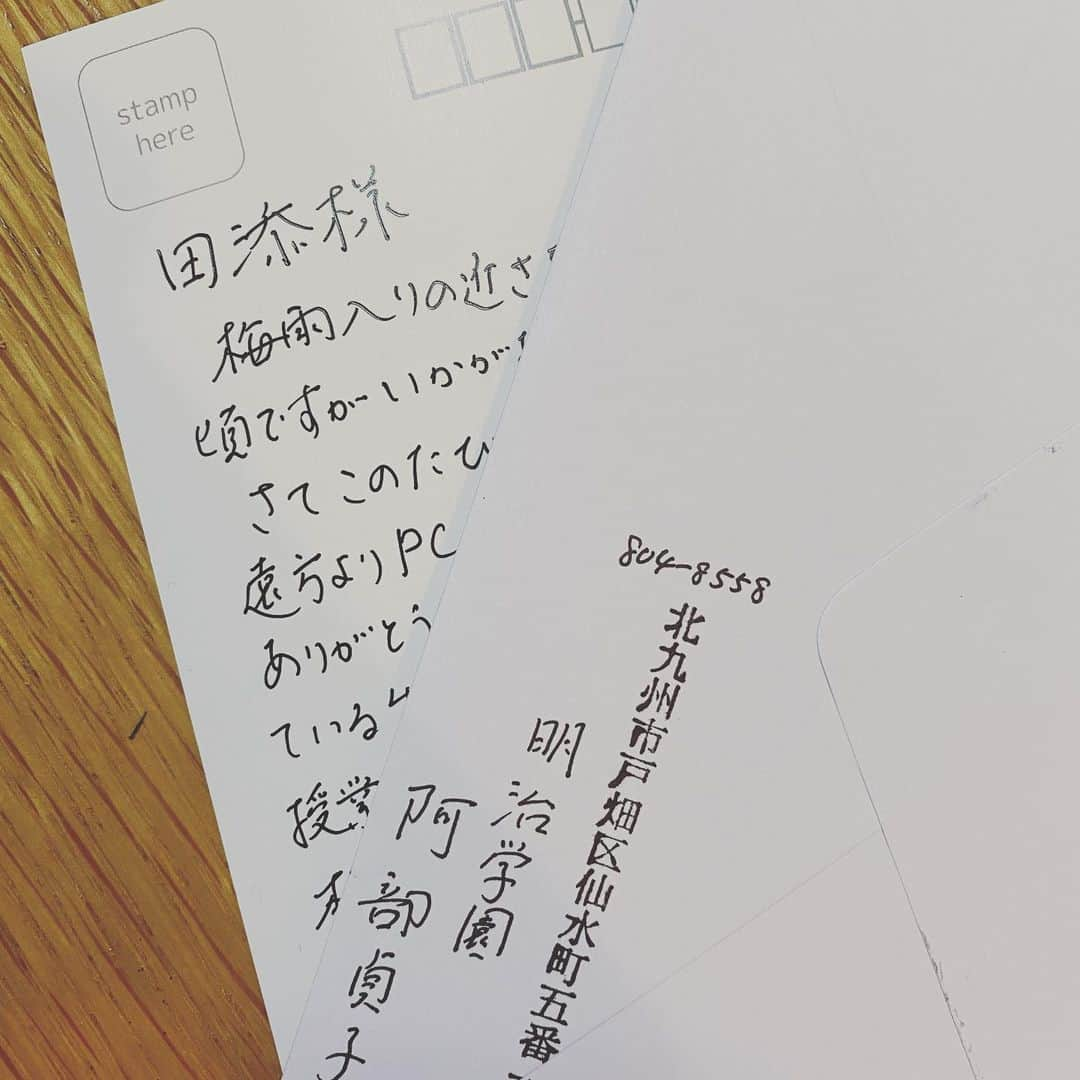 stamp
here
田添様
梅雨入りの近さ
頃ですがいかが
さてこのたび
遠方よりPC
ありがとう
ている
授業
804-8558
北九州市戸畑区仙水町五番
明治学園
阿部貞子